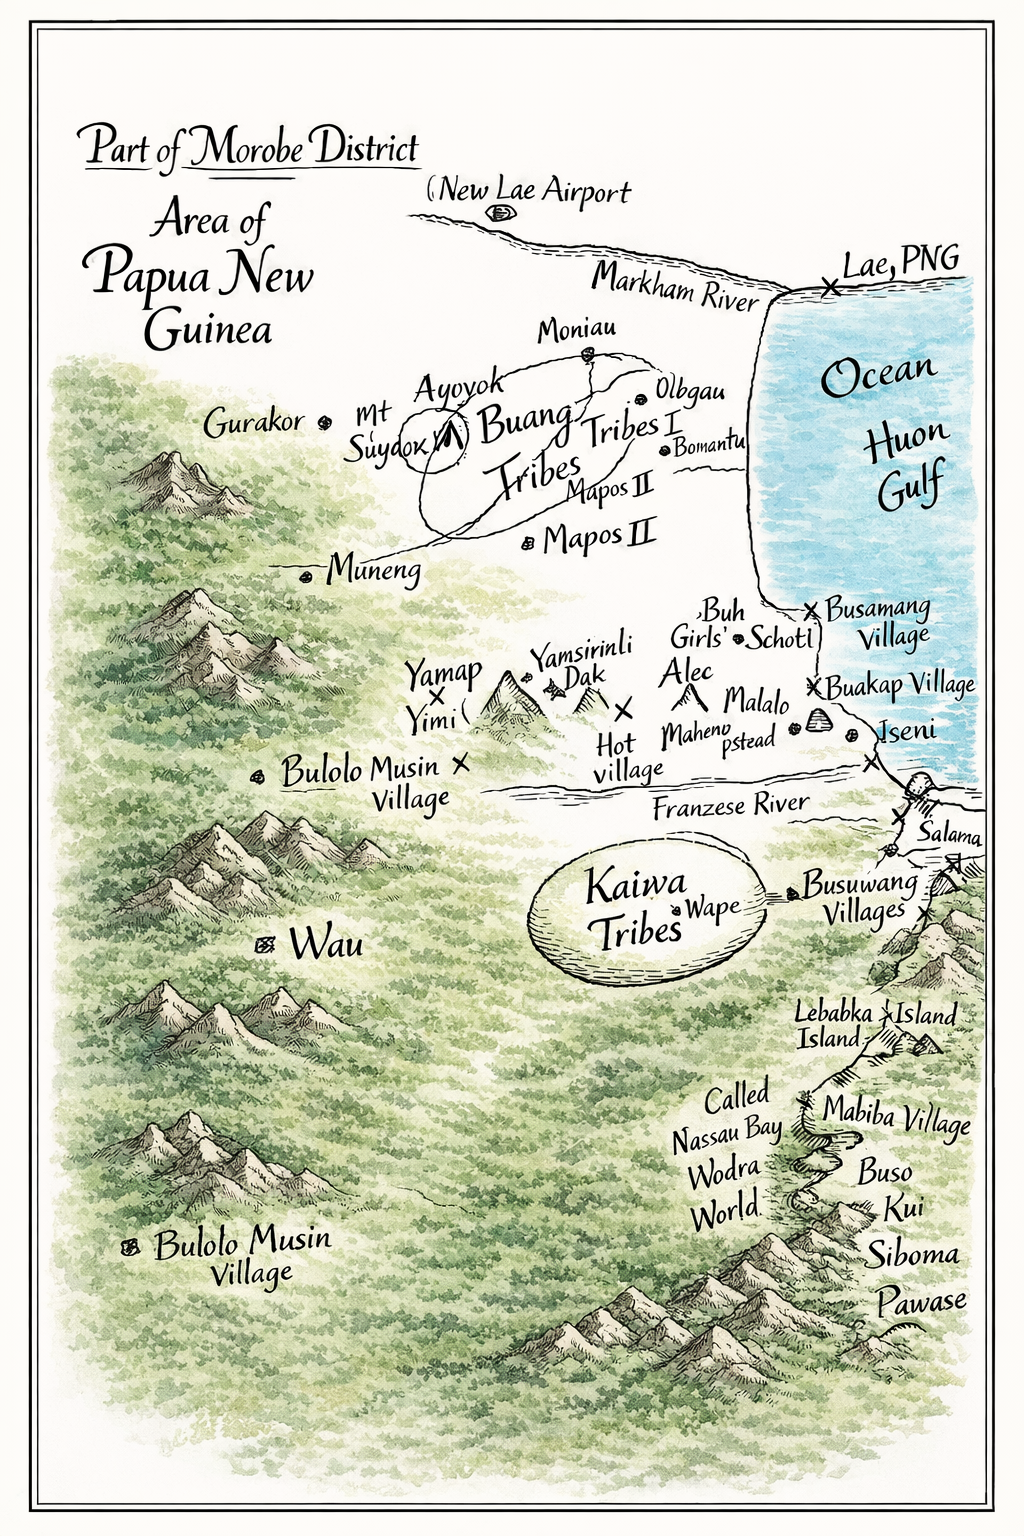 Part of Morobe District
Area of
Papua New
Guinea
(New Lae Airport
Lae, PNG
Markham River
Ocean
Huon
Gulf
Moniau
Ayoyok
Olbgau
Gurakor
Mt
Suydox
Buang
Tribes I
Tribes
Bomantu
Mapos II
Mapos II
Muneng
Buh
Girls' Schotl
Busamang
Village
Yamsirinli
Dak
Yamap
Yimi (
Alec
Malalo
Maheno
pstead
Buakap Village
Iseni
Hot
village
Bulolo Musin
Village
Franzese River
Salama
Kaiwa
Tribes
Wape
Busuwang
Villages
Wau
Lebabka Island
Island
Called
Nassau Bay
Wodra
World.
Mabiba Village
Buso
Kui
Siboma
Pawase
Bulolo Musin
Village